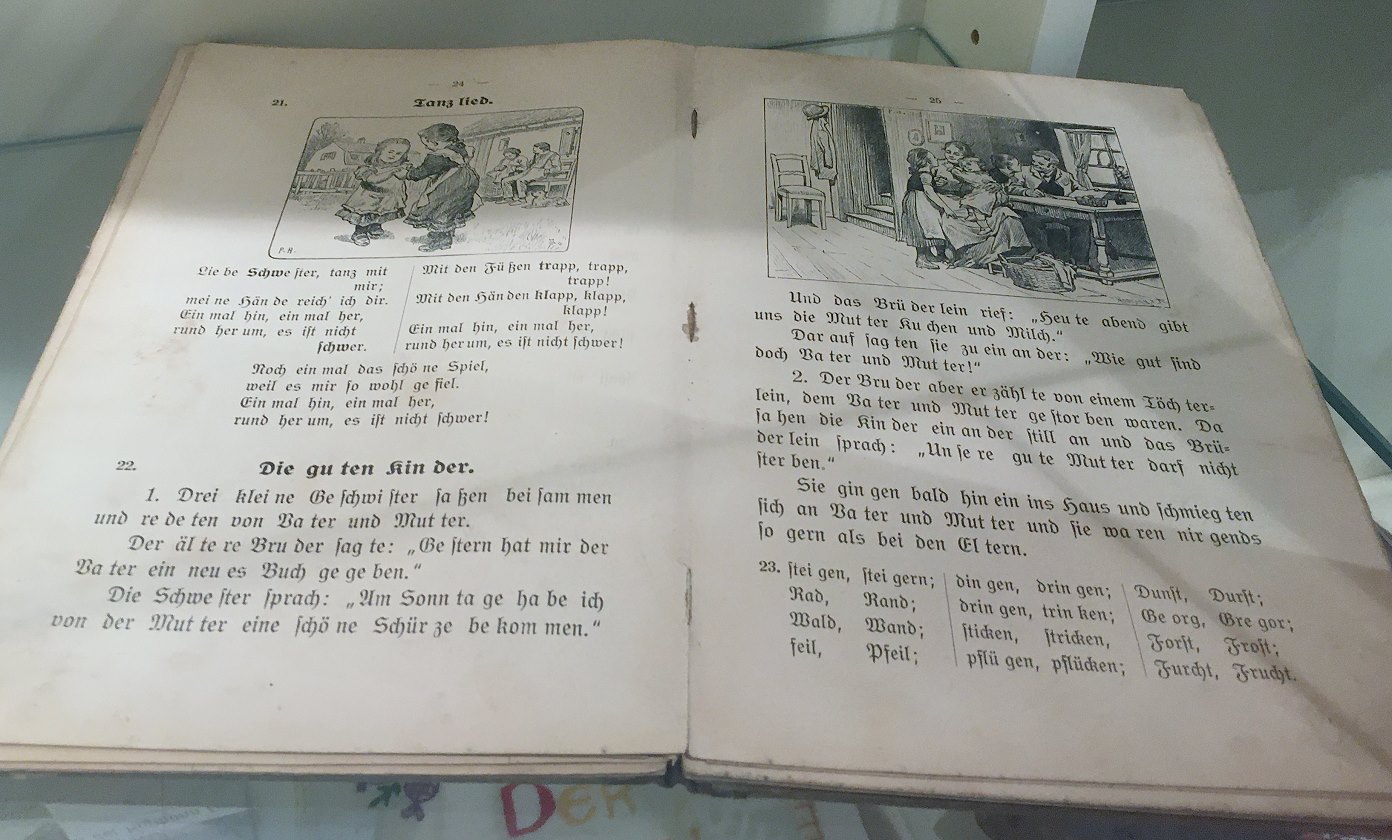 — 24 —
21. Tanz lied.
P. H.
Lie be Schwe ſter, tanz mit
mir;
mei ne Hän de reich' ich dir.
Ein mal hin, ein mal her,
rund her um, es iſt nicht
ſchwer.
Mit den Fü ßen trapp, trapp,
trapp!
Mit den Hän den klapp, klapp,
klapp!
Ein mal hin, ein mal her,
rund her um, es iſt nicht ſchwer!
Noch ein mal das ſchö ne Spiel,
weil es mir ſo wohl ge fiel.
Ein mal hin, ein mal her,
rund her um, es iſt nicht ſchwer!
22. Die gu ten Kin der.
1. Drei klei ne Ge ſchwi ſter ſa ßen bei ſam men
und re de ten von Va ter und Mut ter.
Der äl te re Bru der ſag te: „Ge ſtern hat mir der
Va ter ein neu es Buch ge ge ben.“
Die Schwe ſter ſprach: „Am Sonn ta ge ha be ich
von der Mut ter eine ſchö ne Schür ze be kom men.“
— 25 —
Und das Brü der lein rief: „Heu te abend gibt
uns die Mut ter Ku chen und Milch.“
Dar auf ſag ten ſie zu ein an der: „Wie gut ſind
doch Va ter und Mut ter!“
2. Der Bru der aber er zähl te von einem Töch ter⸗
lein, dem Va ter und Mut ter ge ſtor ben waren. Da
ſa hen die Kin der ein an der ſtill an und das Brü⸗
der lein ſprach: „Un ſe re gu te Mut ter darf nicht
ſter ben.“
Sie gin gen bald hin ein ins Haus und ſchmieg ten
ſich an Va ter und Mut ter und ſie wa ren nir gends
ſo gern als bei den El tern.
23. ſtei gen, ſtei gern;
Rad, Rand;
Wald, Wand;
feil, Pfeil;
din gen, drin gen;
drin gen, trin ken;
ſticken, ſtricken,
pflü gen, pflücken;
Dunſt, Durſt;
Ge org, Gre gor;
Forſt, Froſt;
Furcht, Frucht.
DER